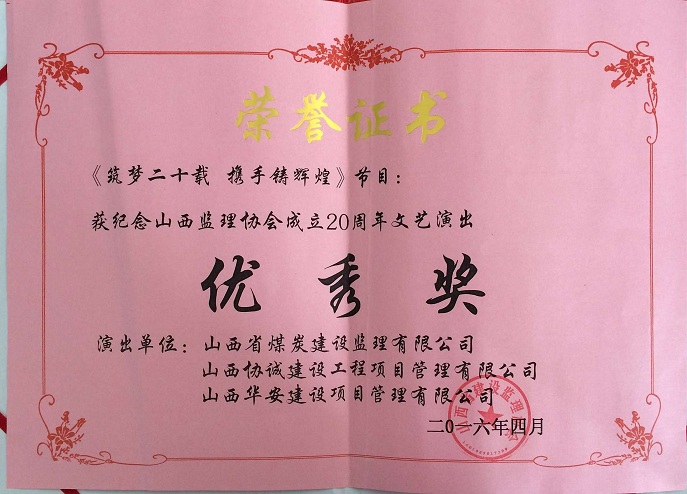 荣誉证书
《筑梦二十载 携手铸辉煌》节目：
获纪念山西监理协会成立20周年文艺演出
优秀奖
演出单位：山西省煤炭建设监理有限公司
山西协诚建设工程项目管理有限公司
山西华安建设项目管理有限公司
二〇一六年四月